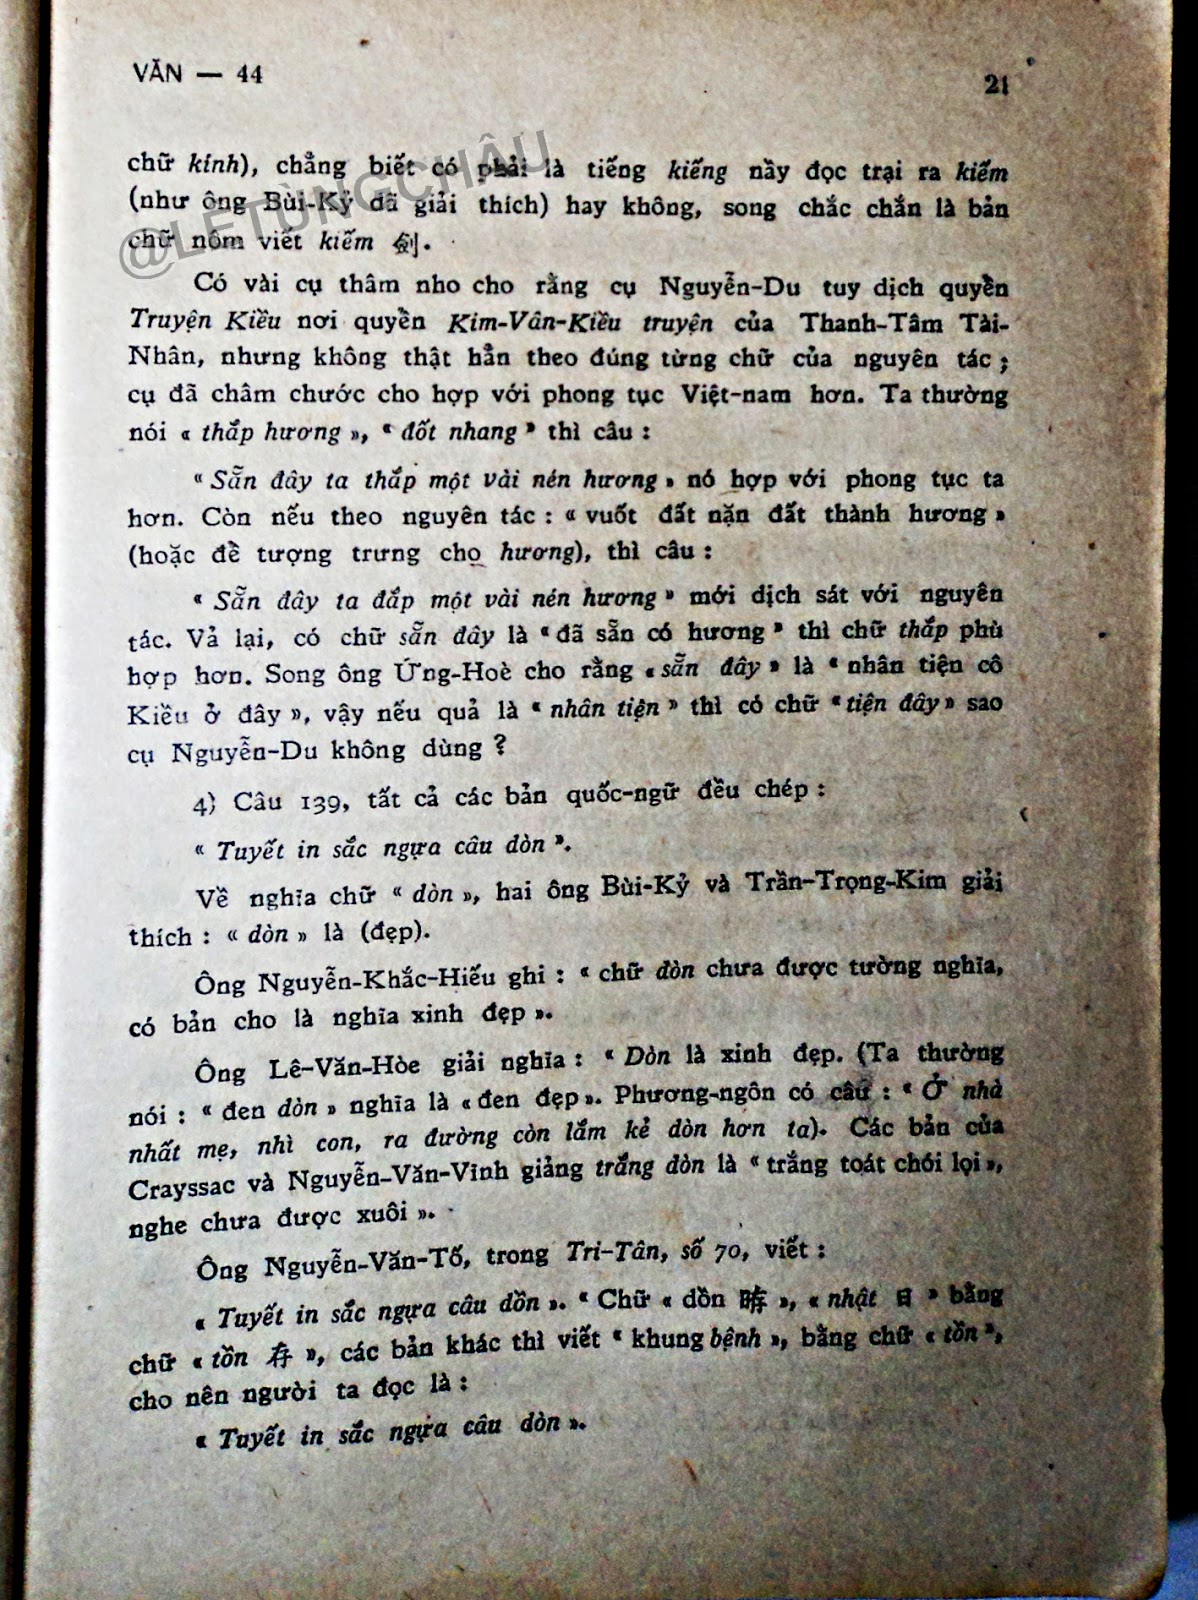 VĂN — 44
21
chữ kính), chẳng biết có phải là tiếng kiếng nầy đọc trại ra kiếm
(như ông Bùi-Kỷ đã giải thích) hay không, song chắc chắn là bản
chữ nôm viết kiếm 劍.
Có vài cụ thâm nho cho rằng cụ Nguyễn-Du tuy dịch quyển
Truyện Kiều nơi quyển Kim-Vân-Kiều truyện của Thanh-Tâm Tài-
Nhân, nhưng không thật hẳn theo đúng từng chữ của nguyên tác ;
cụ đã châm chước cho hợp với phong tục Việt-nam hơn. Ta thường
nói « thắp hương », « đốt nhang » thì câu :
« Sẵn đây ta thắp một vài nén hương » nó hợp với phong tục ta
hơn. Còn nếu theo nguyên tác : « vuốt đất nặn đất thành hương »
(hoặc để tượng trưng cho hương), thì câu :
« Sẵn đây ta đắp một vài nén hương » mới dịch sát với nguyên
tác. Vả lại, có chữ sẵn đây là « đã sẵn có hương » thì chữ thắp phù
hợp hơn. Song ông Ứng-Hoè cho rằng « sẵn đây » là « nhân tiện cô
Kiều ở đây », vậy nếu quả là « nhân tiện » thì có chữ « tiện đây » sao
cụ Nguyễn-Du không dùng ?
4) Câu 139, tất cả các bản quốc-ngữ đều chép :
« Tuyết in sắc ngựa câu dòn ».
Về nghĩa chữ « dòn », hai ông Bùi-Kỷ và Trần-Trọng-Kim giải
thích : « dòn » là (đẹp).
Ông Nguyễn-Khắc-Hiếu ghi : « chữ dòn chưa được tường nghĩa,
có bản cho là nghĩa xinh đẹp ».
Ông Lê-Văn-Hòe giải nghĩa : « Dòn là xinh đẹp. (Ta thường
nói : « đen dòn » nghĩa là « đen đẹp ». Phương-ngôn có câu : « Ở nhà
nhất mẹ, nhì con, ra đường còn lắm kẻ dòn hơn ta). Các bản của
Crayssac và Nguyễn-Văn-Vĩnh giảng trắng dòn là « trắng toát chói lọi »,
nghe chưa được xuôi ».
Ông Nguyễn-Văn-Tố, trong Tri-Tân, số 70, viết :
« Tuyết in sắc ngựa câu dồn ». « Chữ « dồn », « nhật 日 » bằng
chữ « tồn 存 », các bản khác thì viết « khung bệnh », bằng chữ « tồn »,
cho nên người ta đọc là :
« Tuyết in sắc ngựa câu dòn ».
@LETUNGCHÂU